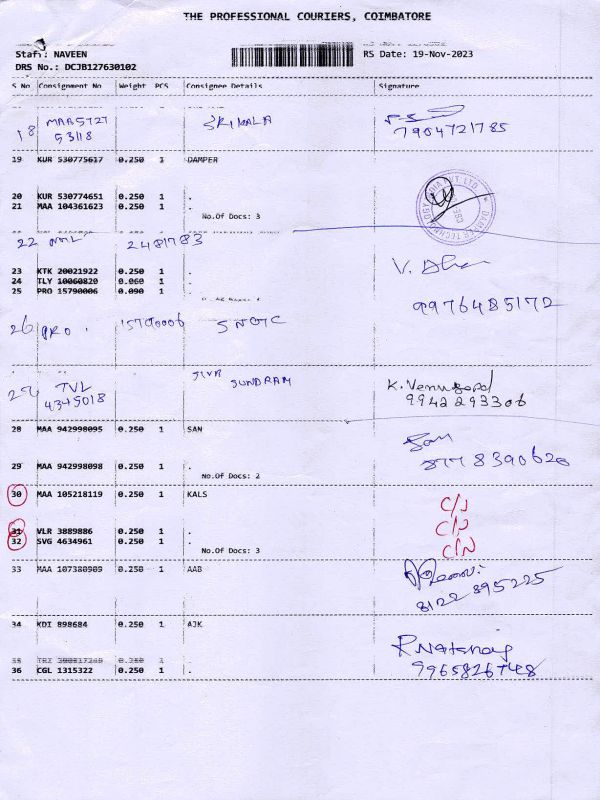 THE PROFESSIONAL COURIERS, COIMBATORE
Staff: NAVEEN RS Date: 19-Nov-2023
DRS No.: DCJB127630102
S No Consignment No Weight PCS Consignee Details Signature
18 MAA5727 SRIMALA
53118 7904721785
19 KUR 530775617 0.250 1 DAMPER
20 KUR 530774651 0.250 1 .
21 MAA 104361623 0.250 1 .
No.Of Docs: 3
22 2481783
23 KTK 20021922 0.250 1 .
24 TLY 10060820 0.060 1 .
25 PRO 15790006 0.090 1 .
9976485172
26 PRO. 15790006
27 TVL SUNDRAM
4345018
K. Venugopal
9942293306
28 MAA 942998095 0.250 1 SAN
29 MAA 942998098 0.250 1 .
No.Of Docs: 2
8778390620
30 MAA 105218119 0.250 1 KALS C/N
31 VLR 3889886 0.250 1 . C/N
32 SVG 4634961 0.250 1 . C/N
No.Of Docs: 3
33 MAA 107380909 0.250 1 AAB
8122895225
34 KDI 898684 0.250 1 AJK
35 0.250 1 .
36 CGL 1315322 0.250 1 .
9965826748